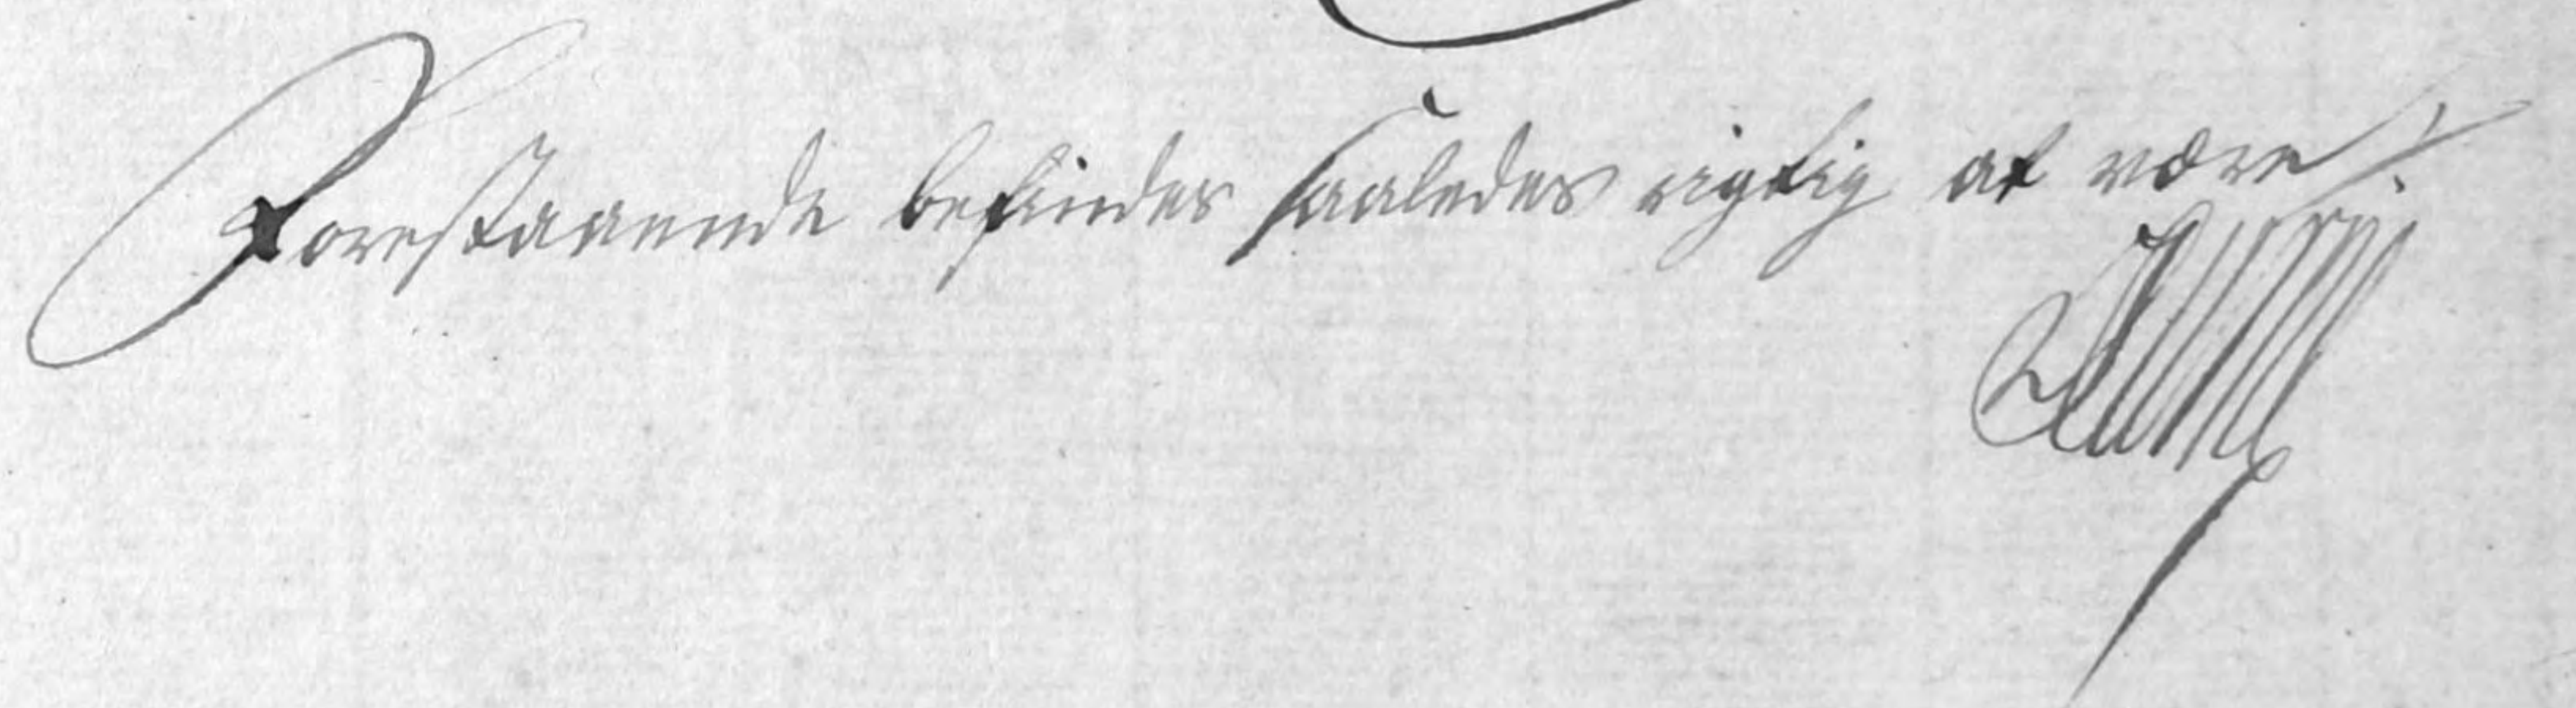 Forestaaende befindes saaledes rigtig at være ⁒